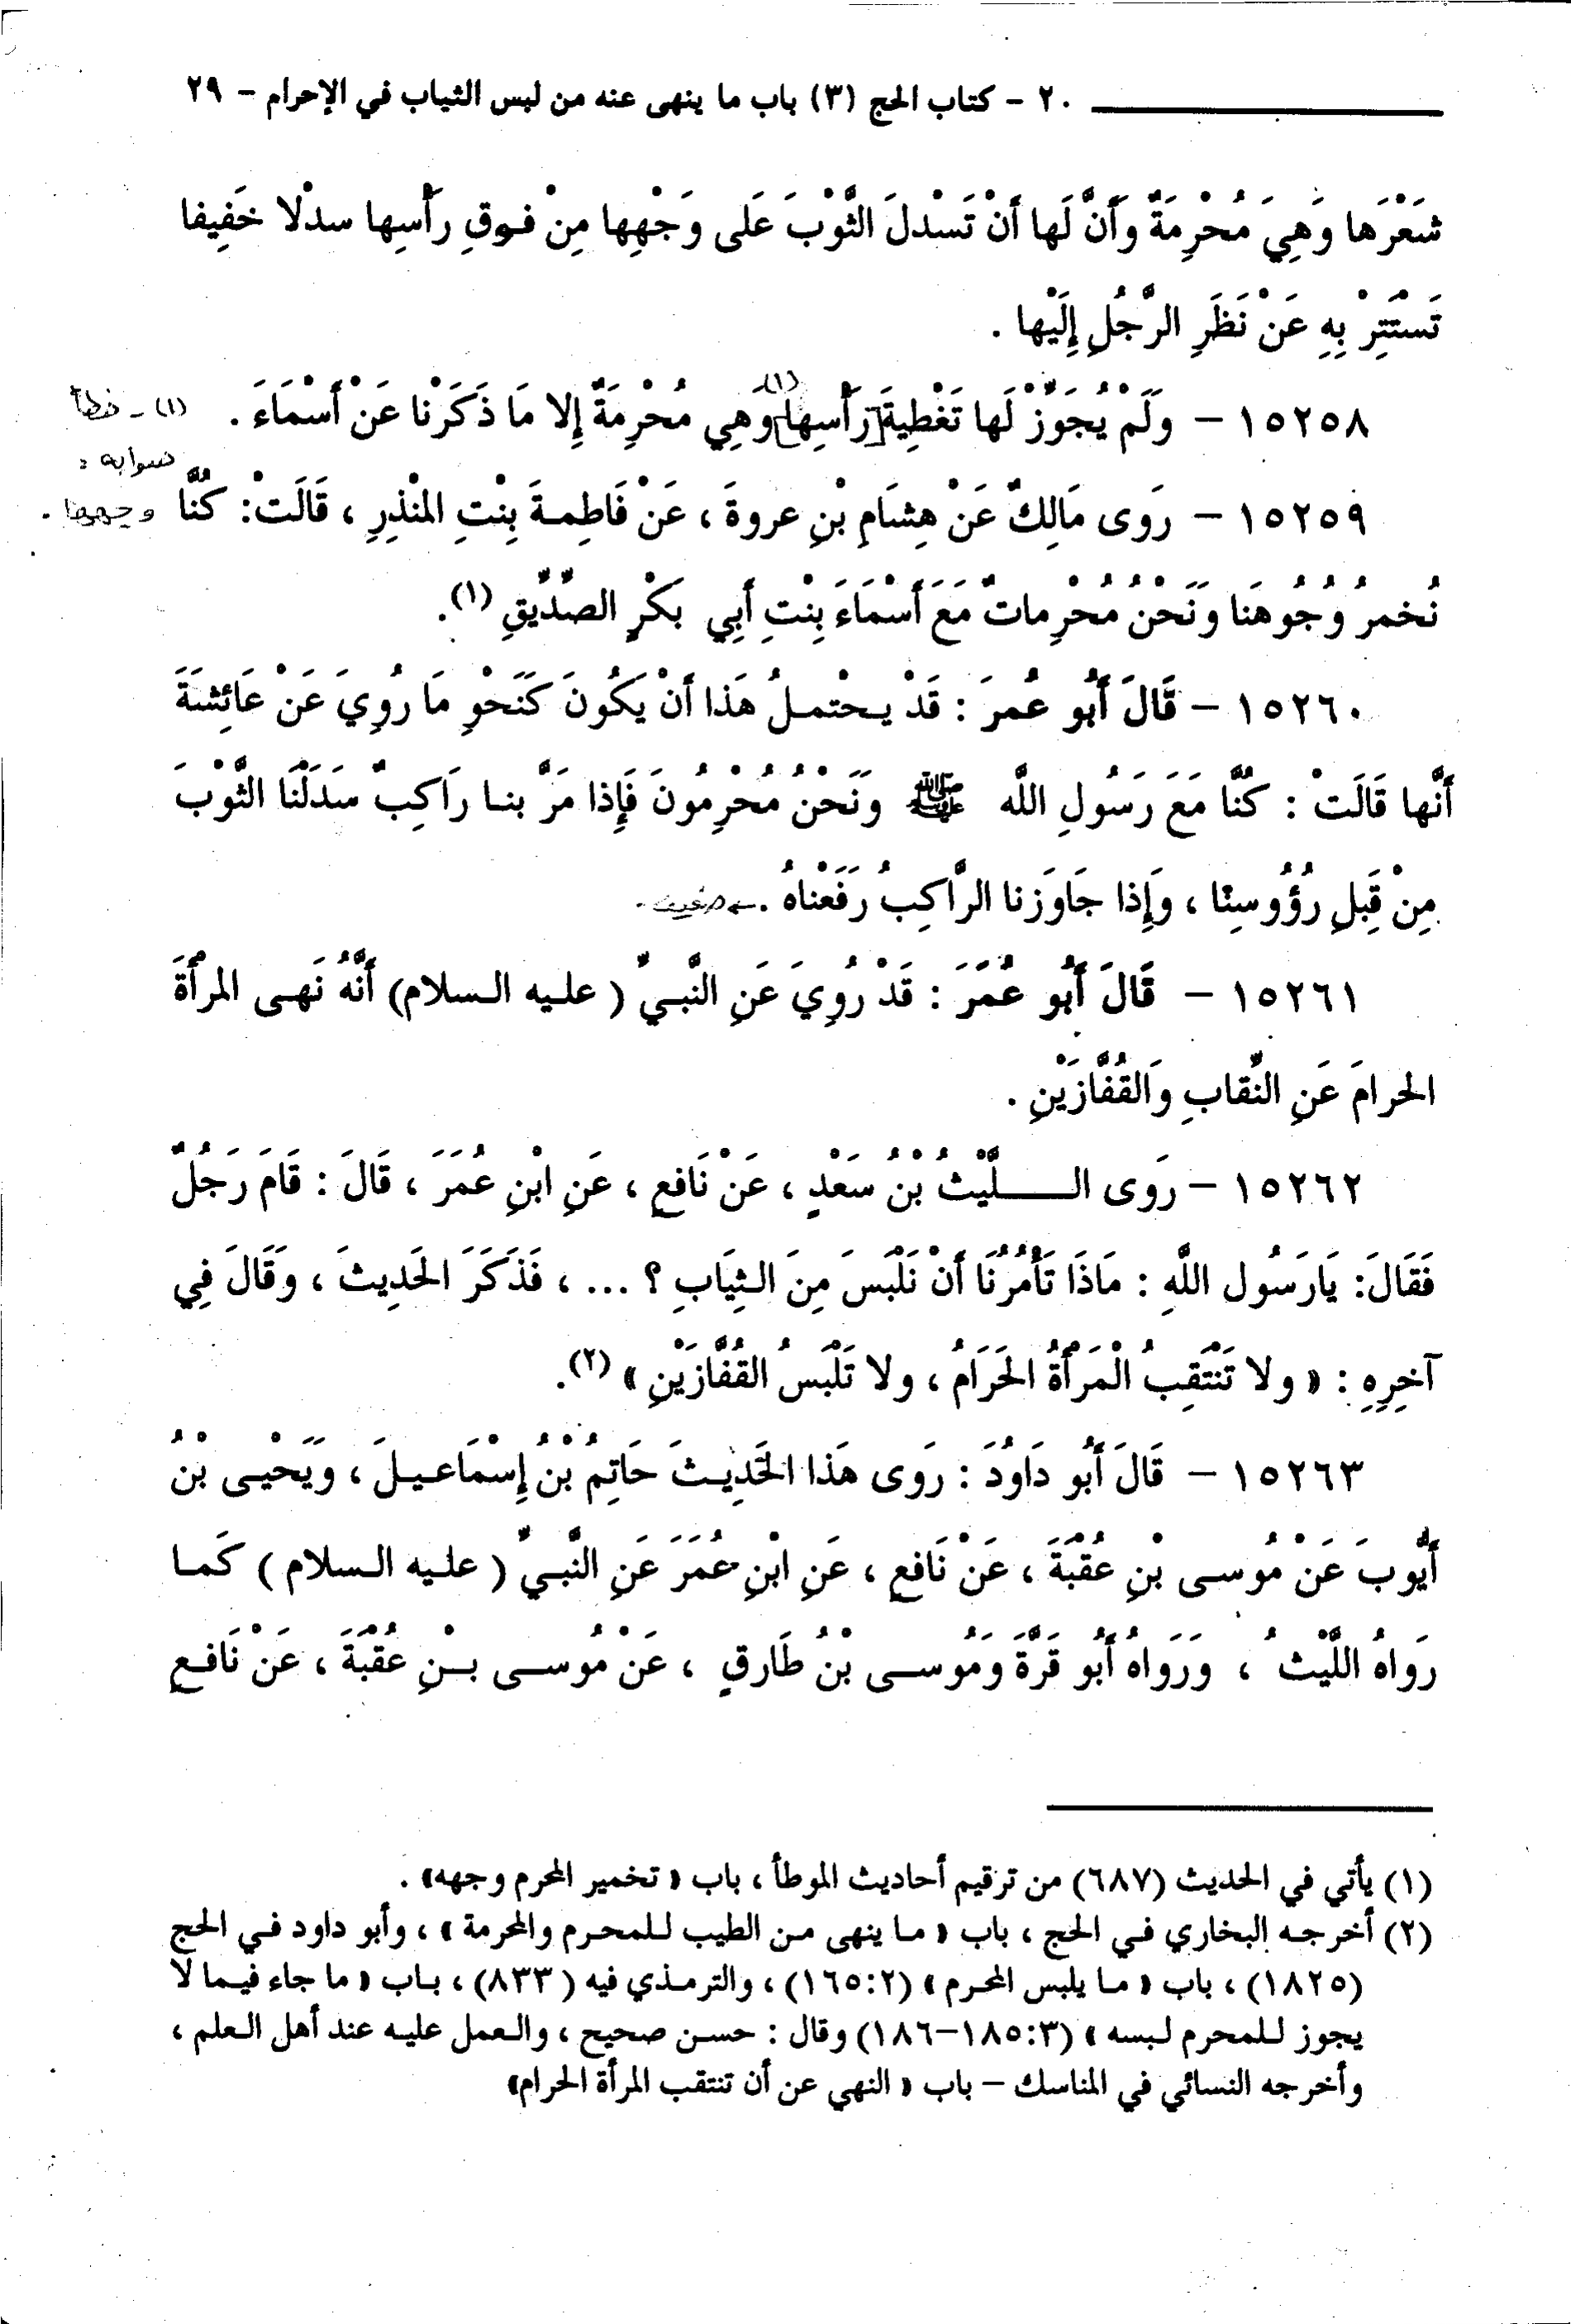 ٢٠ - كتاب الحج (٣) باب ما ينهى عنه من لبس الثياب في الإحرام - ٢٩
شَعْرَها وَهِيَ مُحْرِمَةٌ وَأَنَّ لَها أَنْ تَسْدلَ الثَّوْبَ عَلى وَجْهِها مِنْ فوقِ رَأْسِها سدْلًا خَفِيفا
تَسْتَتِرْ بِهِ عَنْ نَظَرِ الرَّجُلِ إِلَيْها .
١٥٢٥٨ - وَلَمْ يُجَوِّزْ لَها تَغْطِيَةَ [رَأْسِها] (١) وَهِي مُحْرِمَةٌ إِلا مَا ذَكَرْنا عَنْ أَسْمَاءَ .
(١) - خطأ
صوابه :
وجهها .
١٥٢٥٩ - رَوَى مَالِكٌ عَنْ هِشَامِ بْنِ عروةَ ، عَنْ فَاطِمةَ بِنْتِ المنْذِرِ ، قَالَتْ: كُنَّا
نُخمرُ وُجُوهَنا وَنَحْنُ مُحْرِماتٌ مَعَ أَسْمَاءَ بِنْتِ أَبِي بَكْرٍ الصِّدِّيقِ (١).
١٥٢٦٠ - قَالَ أَبُو عُمرَ : قَدْ يحْتملُ هَذا أَنْ يَكُونَ كَنَحْوِ مَا رُوِيَ عَنْ عَائِشَةَ
أَنَّها قَالَتْ : كُنَّا مَعَ رَسُولِ اللَّه ﷺ وَنَحْنُ مُحْرِمُونَ فَإِذا مَرَّ بنا رَاكِبٌ سَدَلْنَا الثَّوْبَ
مِنْ قِبَلِ رُؤُوسِنْا ، وَإِذا جَاوَزنا الرَّاكِبُ رَفَعْناهُ . ← ضعيف .
١٥٢٦١ - قَالَ أَبُو عُمَرَ : قَدْ رُوِيَ عَنِ النَّبيِّ ( عليه السلام) أَنَّهُ نَهى المرْأَةَ
الحرامَ عَنِ النِّقابِ وَالقُفَّازَيْنِ .
١٥٢٦٢ - رَوَى اللَّيْثُ بْنُ سَعْدٍ ، عَنْ نَافعٍ ، عَنِ ابْنِ عُمَرَ ، قَالَ : قَامَ رَجُلٌ
فَقَالَ: يَارَسُول اللَّهِ : مَاذَا تَأْمُرُنَا أَنْ نَلْبَسَ مِنَ الثِيَابِ ؟ ... ، فَذَكَرَ الحَدِيثَ ، وَقَالَ فِي
آخِرِهِ : « ولا تَنْتَقِبُ الْمَرَأْةُ الحَرَامُ ، ولا تَلْبَسُ القُفَّازَيْنِ » (٢).
١٥٢٦٣ - قَالَ أَبُو دَاوُدَ : رَوى هَذا الحَدِيثَ حَاتِمُ بْنُ إِسْمَاعيلَ ، وَيَحْيى بْنُ
أَيُّوبَ عَنْ مُوسى بْنِ عُقْبَةَ ، عَنْ نَافعٍ ، عَنِ ابْنِ عُمَرَ عَنِ النَّبيِّ ( عليه السلام ) كَما
رَواهُ اللَّيْثُ ، وَرَوَاهُ أَبُو قَرَّةَ وَمُوسى بْنُ طَارقٍ ، عَنْ مُوسى بْنِ عُقْبَةَ ، عَنْ نَافعٍ
(١) يأتي في الحديث (٦٨٧) من ترقيم أحاديث الموطأ ، باب « تخمير المحرم وجهه» .
(٢) أخرجه البخاري في الحج ، باب « ما ينهى من الطيب للمحرم والمحرمة » ، وأبو داود في الحج
(١٨٢٥) ، باب « ما يلبس المحرم » (١٦٥:٢) ، والترمذي فيه (٨٣٣) ، باب « ما جاء فيما لا
يجوز للمحرم لبسه » (١٨٥:٣-١٨٦) وقال : حسن صحيح ، والعمل عليه عند أهل العلم ،
وأخرجه النسائي في المناسك - باب « النهي عن أن تنتقب المرأة الحرام»